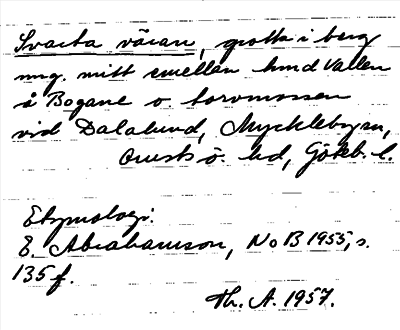 Svarta våran, grotta i berg
ung. mitt emellan hmd Vallen
å Bogane o. torvmossen
vid Dalalund, Mycklebyn,
Orusts ö. hd, Göteb. l.
Etymologi:
E. Abrahamson, NoB 1955, s.
135 f.
Th. A. 1957.